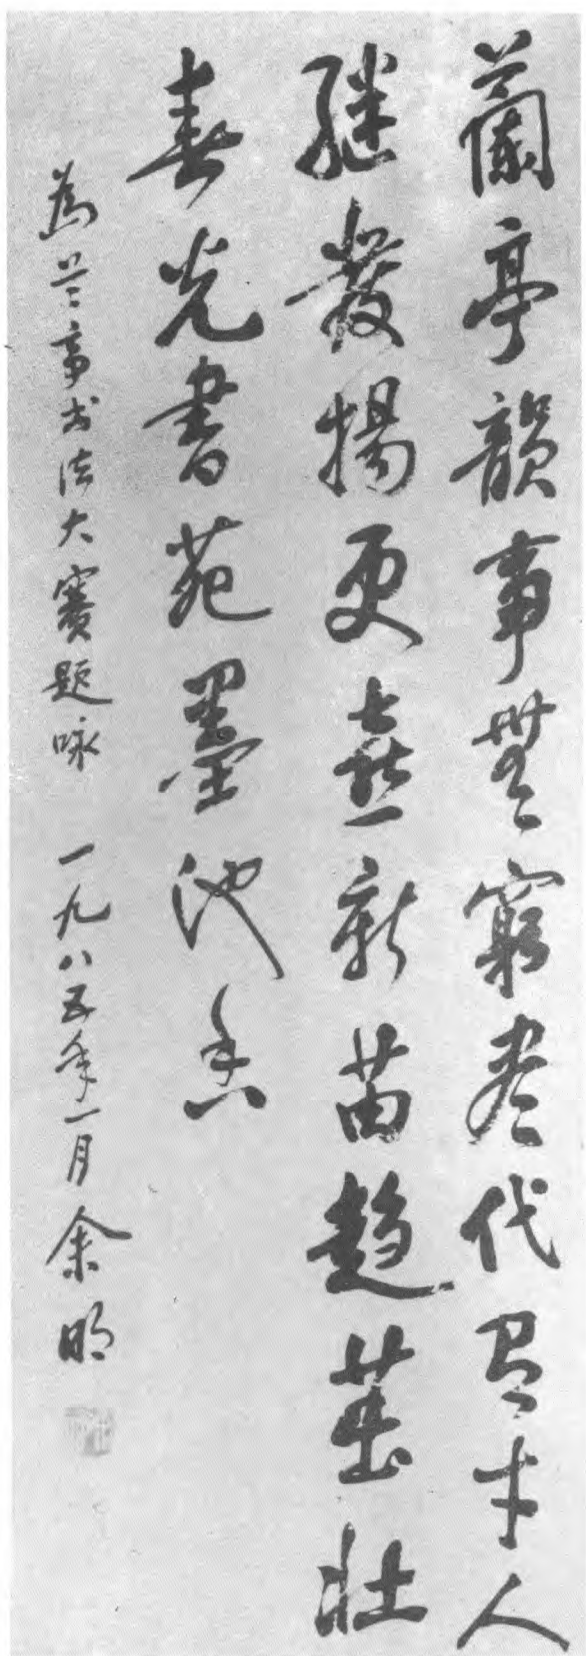 蘭亭韻事無窮盡代有才人
継發揚更喜新苗趨茁壯
春光書苑墨池香
為兰亭书法大賽題咏 一九八五年一月 余明